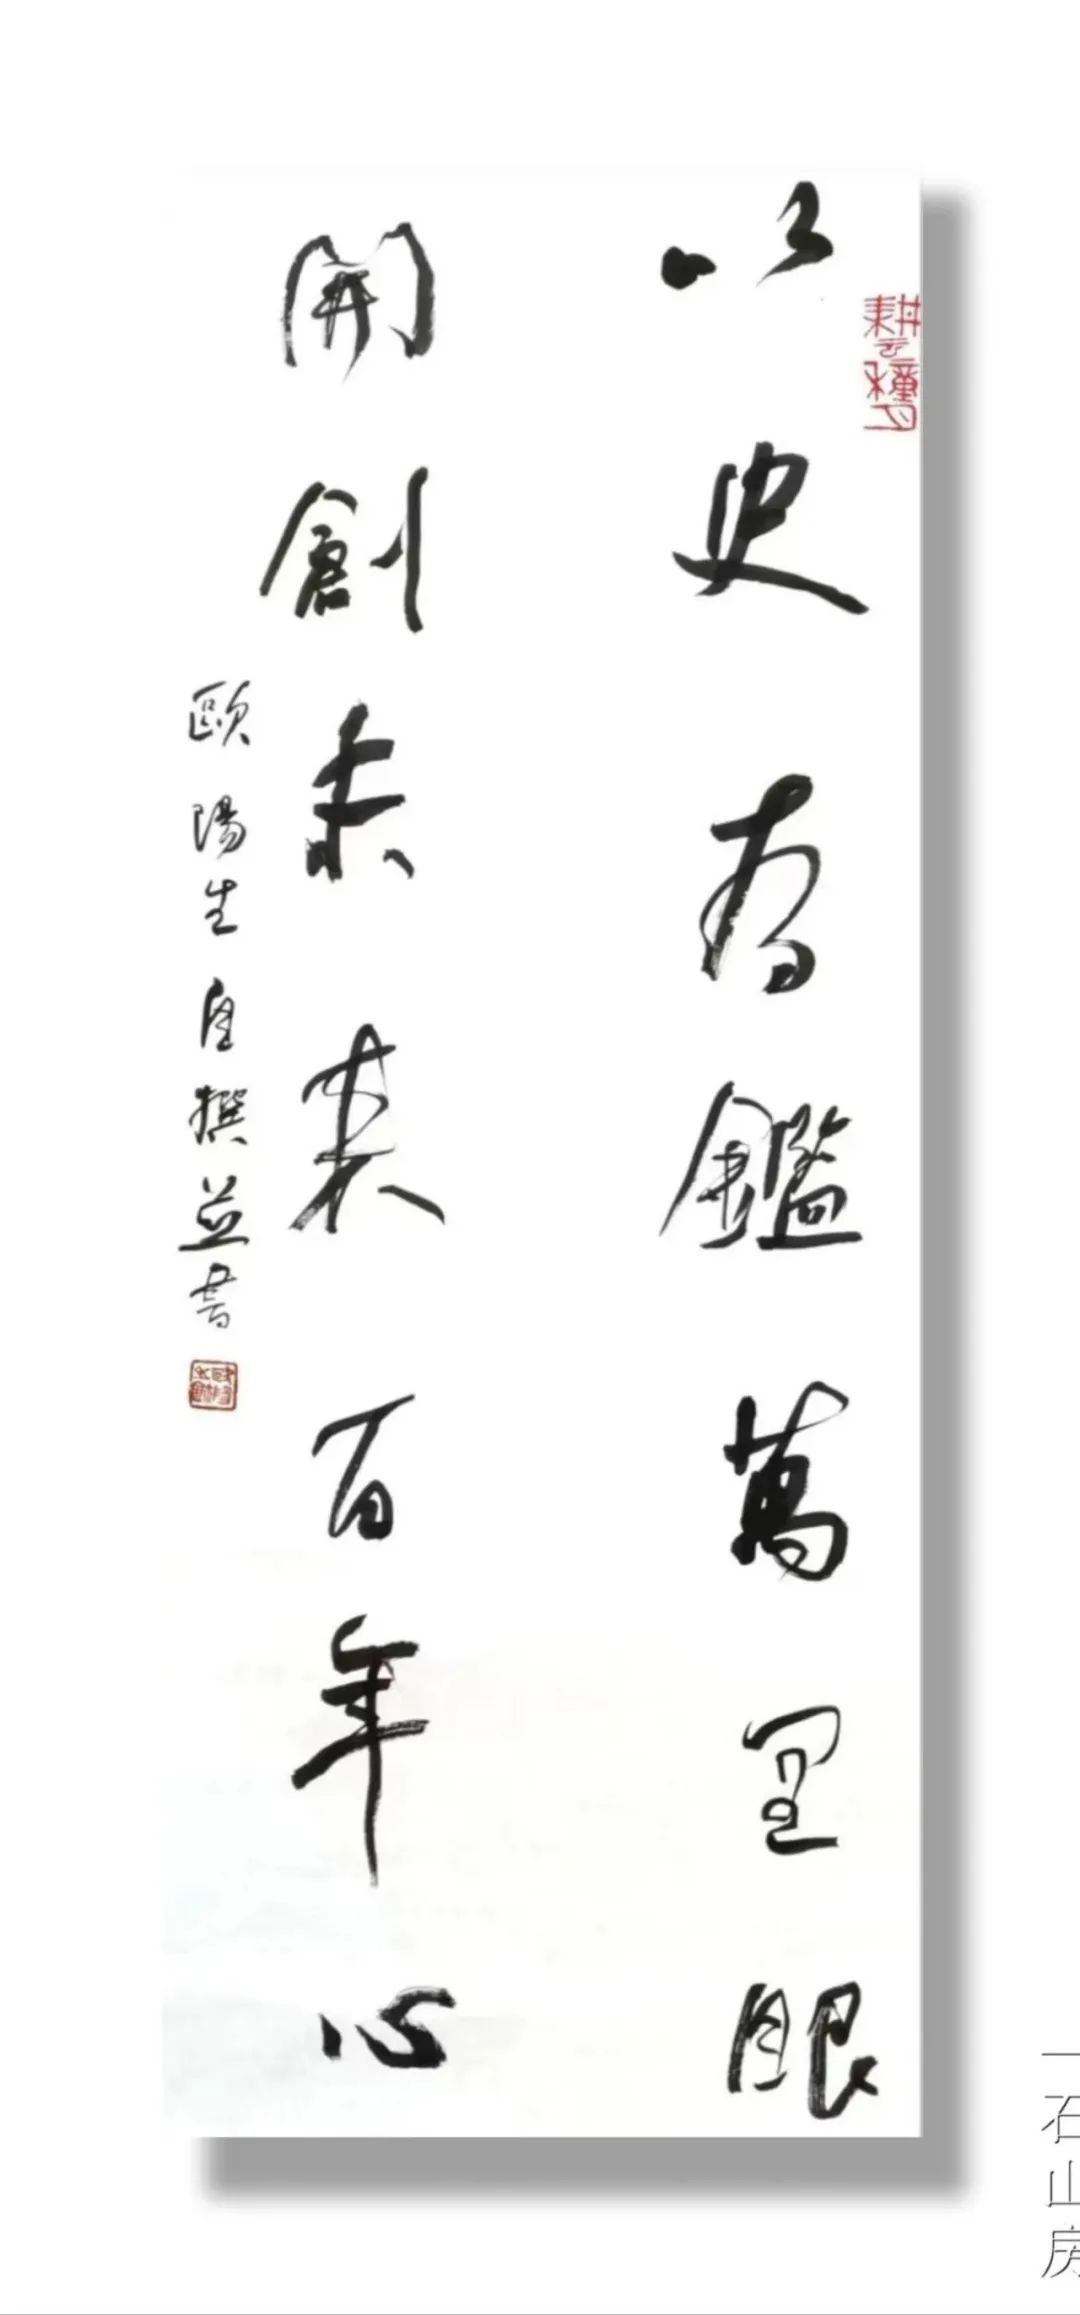 以史為鑑萬里眼
開創未來百年心
歐陽生自撰並書
耕雲種月
一石山房